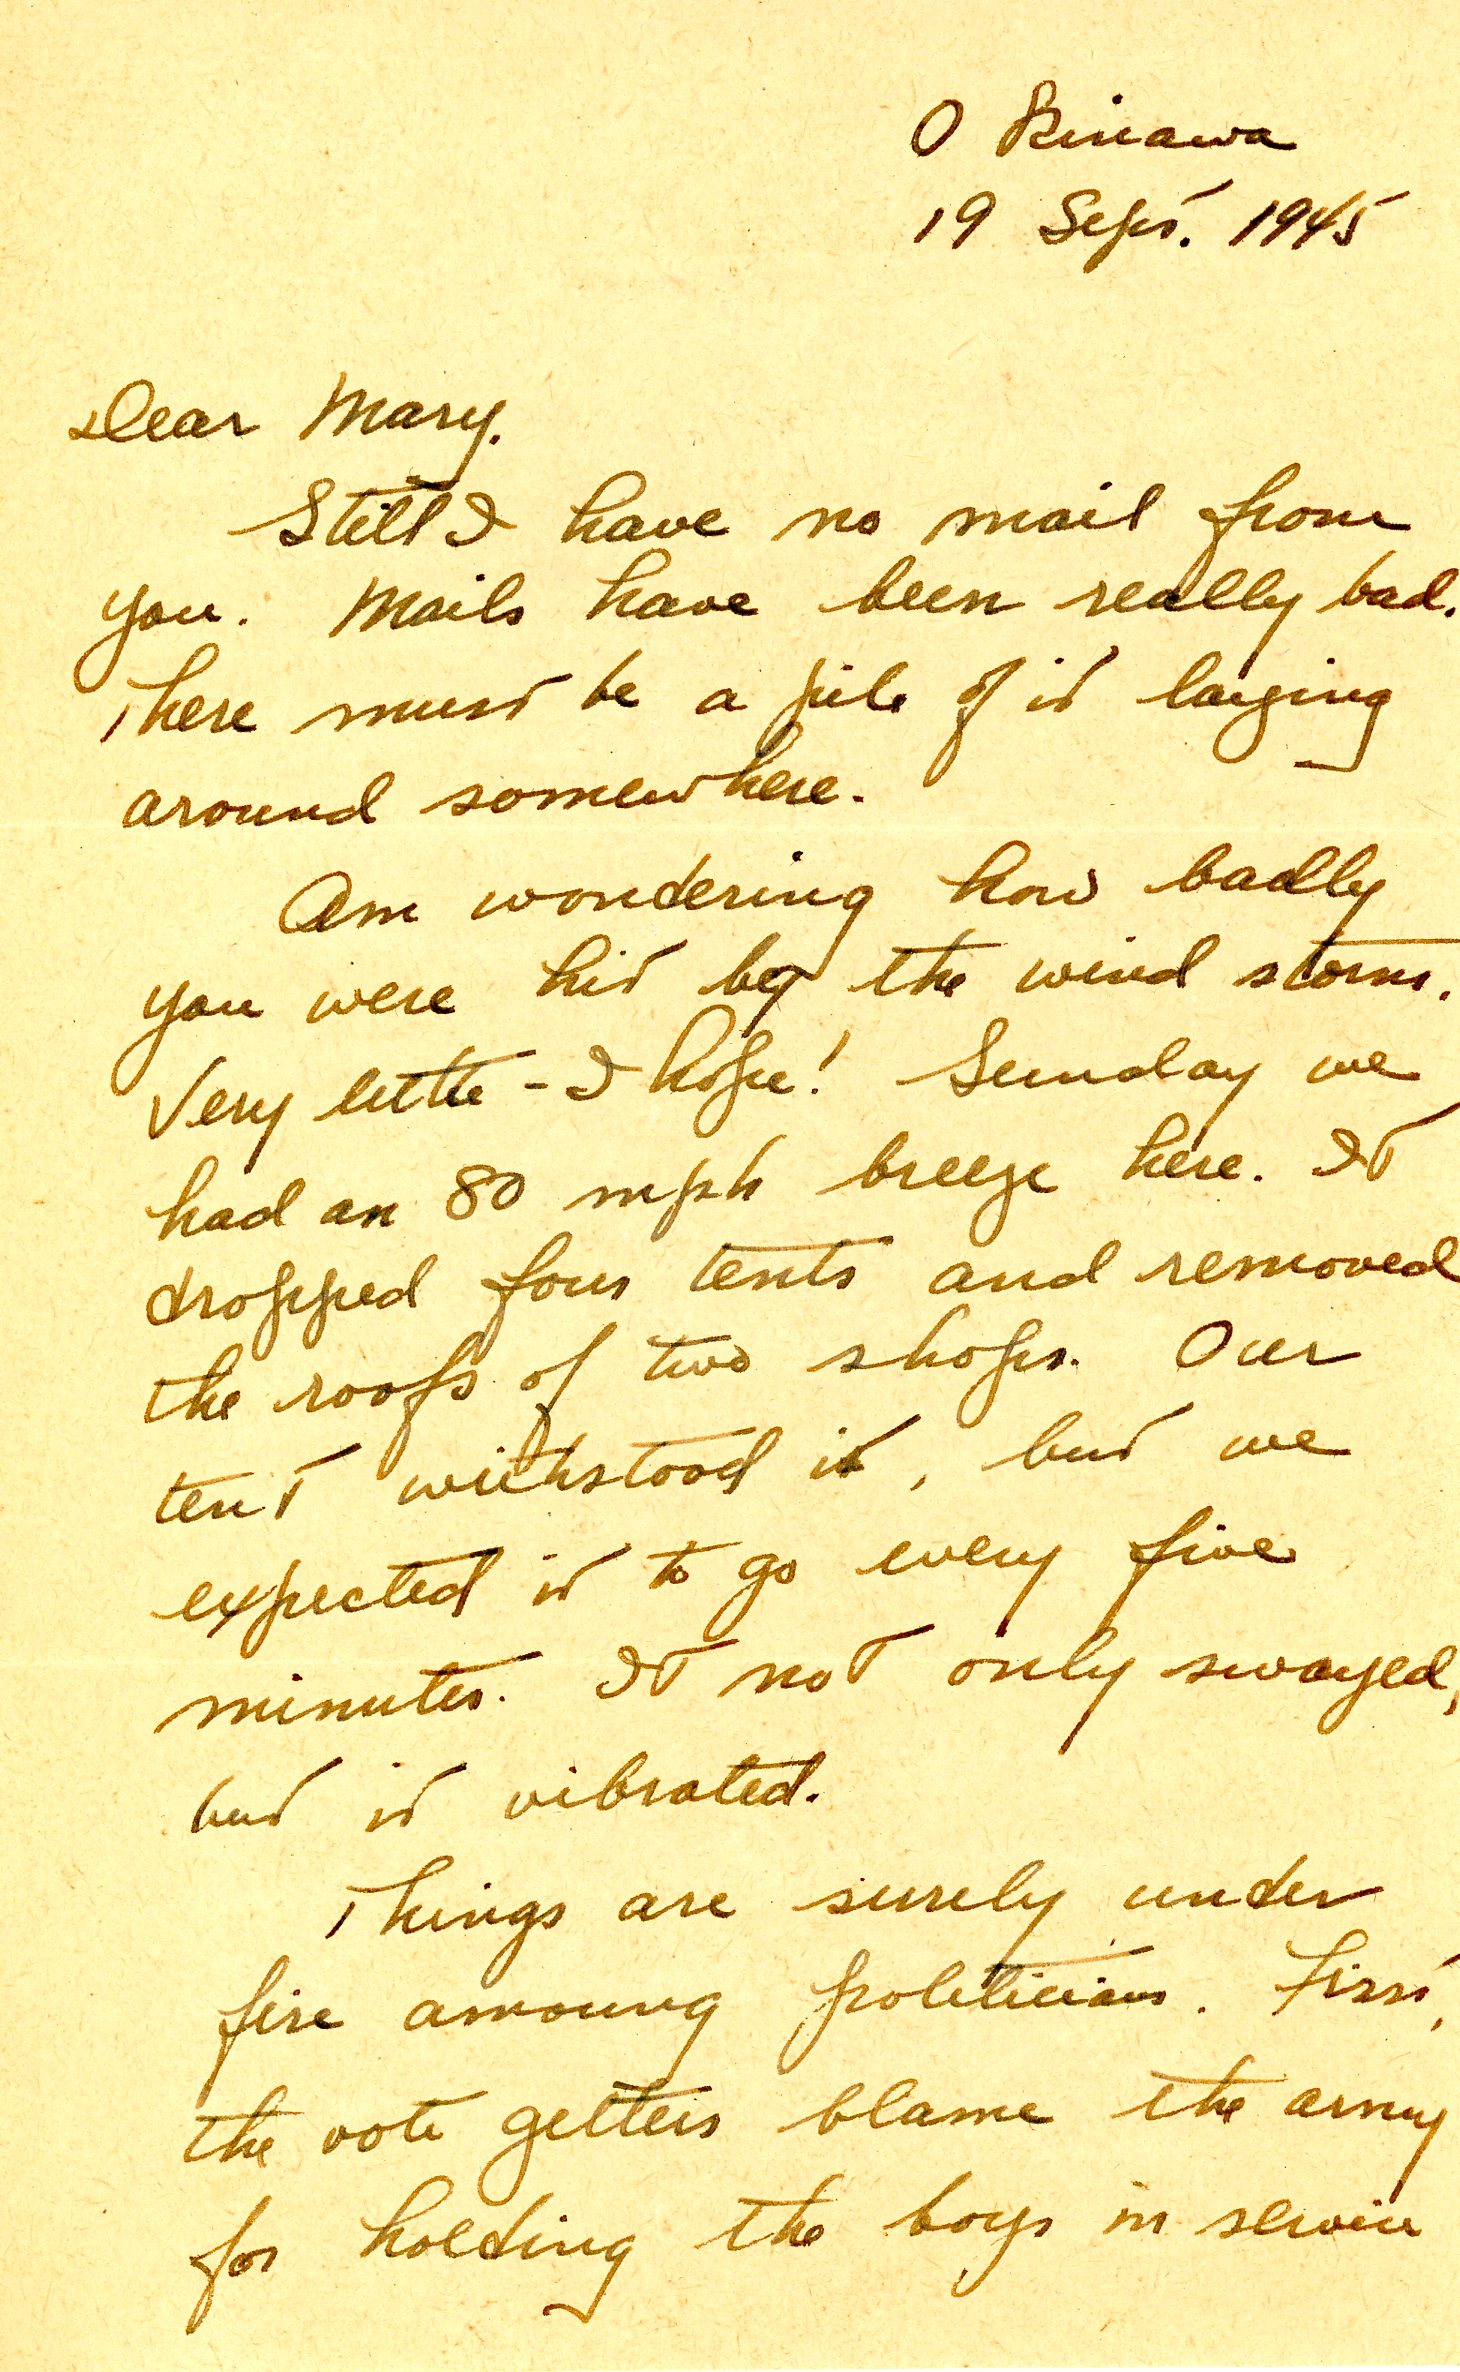 O Kinawa
19 Sept. 1945
Dear Mary.
Still I have no mail from
you. Mails have been really bad.
There must be a pile of it laying
around somewhere.
Am wondering how badly
you were hit by the wind storm.
Very little - I hope! Sunday we
had an 80 mph breeze here. It
dropped four tents and removed
the roofs of two shops. Our
tent withstood it, but we
expected it to go every five
minutes. It not only swayed,
but it vibrated.
Things are surely under
fire amoung politicians. First,
the vote getters blame the army
for holding the boys in service